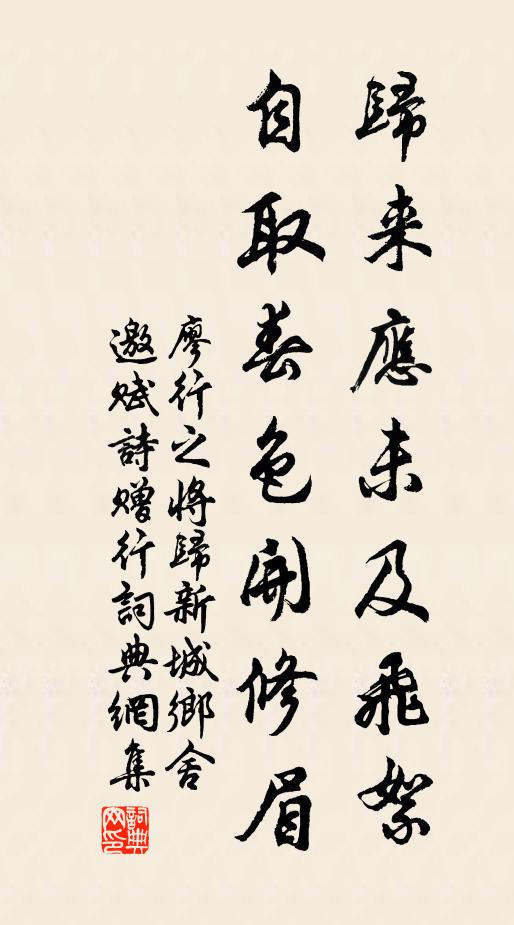 歸来應未及飛絮
自取春色開修眉
廖行之將歸新城鄉舍
邀賦詩赠行詞典網集
詞典网印